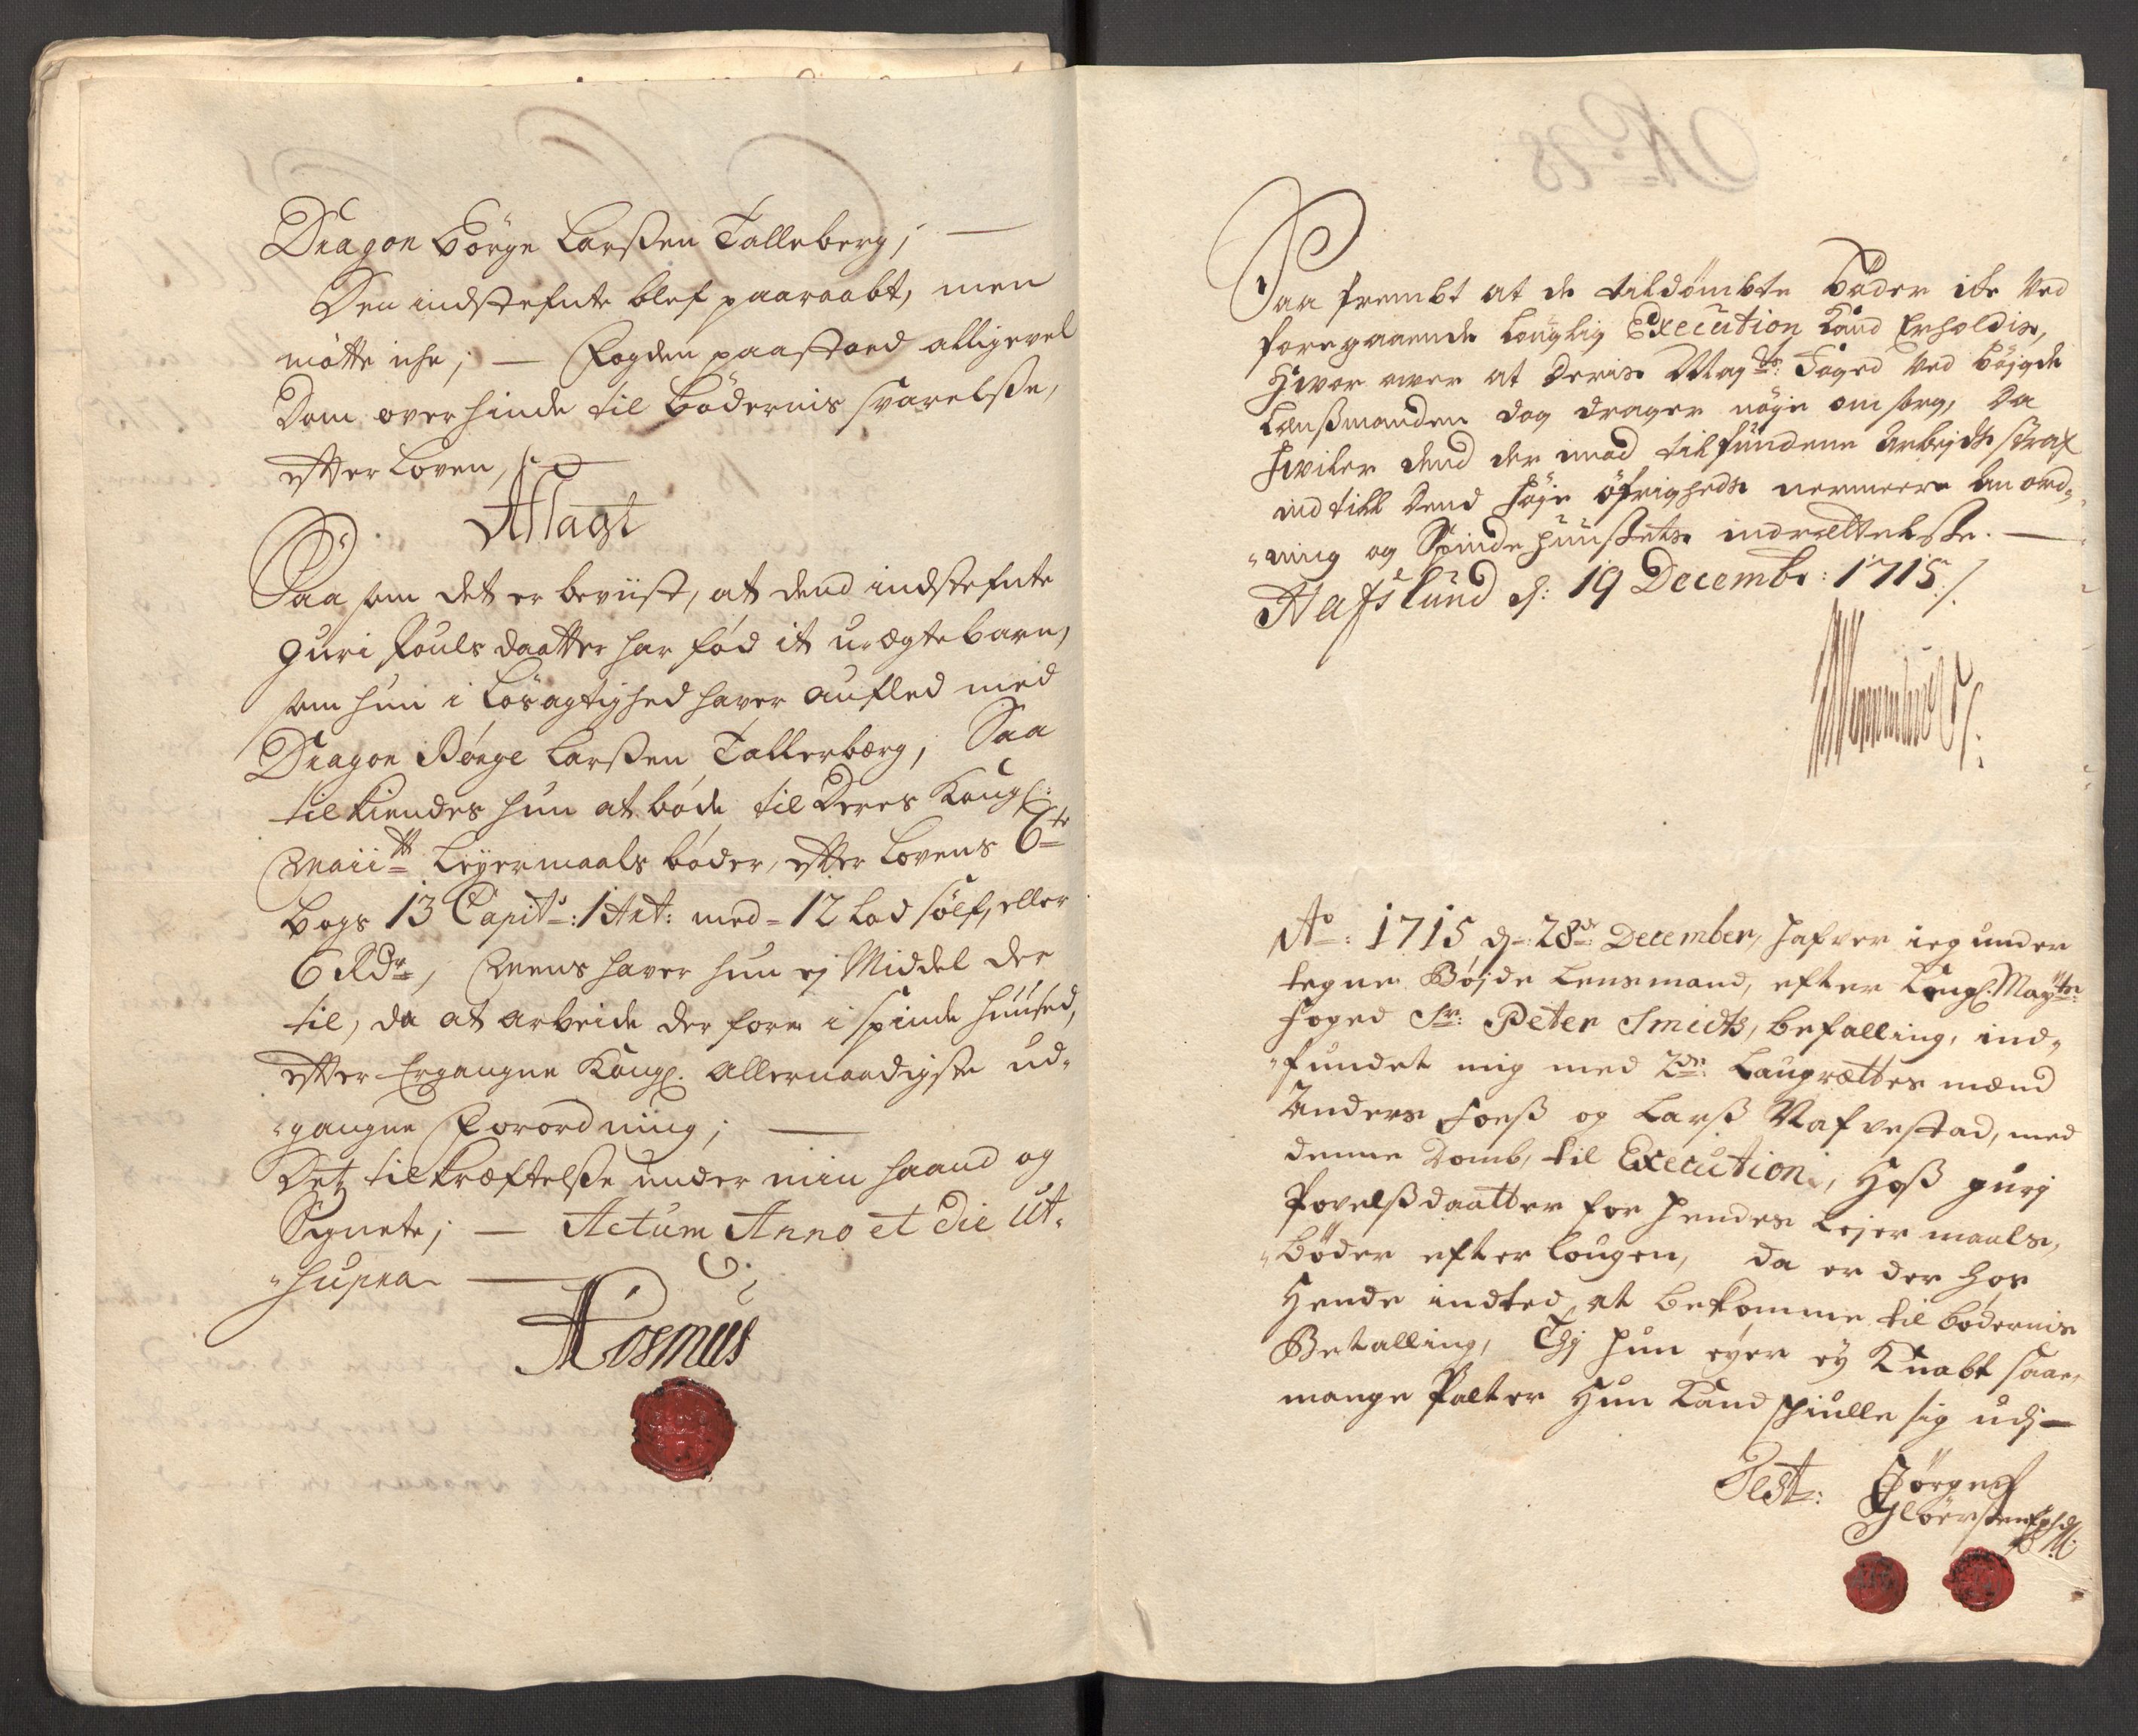 Dragon Börge Larssen Talleberg; —
Den indstefnte blef paaraabt, men
mötte iche; — Fogden paastoed alligevel
Dom over hinde til Bödernis svarelsse,
effter Loven,
Afsagt
Saa som det er beviist, at dend indstefnte
Guri Pouls daatter har fód it uægte barn,
som hun i Lösagtighed haver aufled med
Dragon Börge Larssen Tallerbærg; Saa
tilkiendes hun at bóde til Deres Kongl:
Maii<sup>tt</sup> Leyermaals bóder, effter Lovens 6<sup>te</sup>
Bogs 13 Capit<sup>s</sup>: 1 Art: med = 12 Lod sölf, eller
6 Rd<sup>r</sup>, Mens haver hun ej Middel der
til, da at arbeide der fore i spinde huused,
effter Ergangne Kongl. Allernaadigste ud-
"gangne Forordning; —
Det til Kræftelsse under min haand og
Signete; — Actum Anno et Die ut-
"supra —
ARosmus
No 28
Saa frembt at de tildömbte böder ike ved
foregaaende Louglig Execution Kand Erholdis,
Hvor over at Deris May<sup>ts</sup>: Foged ved böjgde
Lenssmanden dog drager nöye omsorg, Da
hviler dend der imod tilfundene Arbejde strax
indtill Dend höje öfrigheds nermeere An ord-
"ning og Spindehuussets indrættelsse. —
Hafslund d: 19 Decembr: 1715 /.
A<sup>o</sup>: 1715 d: 28<sup>de</sup> December, hafver ieg under
tegne Böjde Lensmand, efter Kongl. May<sup>ttes</sup>
Foged Sr: Peter Smidts, befalling, ind-
"fundet mig med 2<sup>de</sup> Laugrættes mænd
Anders Foss og Larss Nafvestad, med
denne Domb, til Execution, Hoss Gurj
Povelssdaatter for hendes Lejer maals,
"böder efter Lougen, da er der hos
Hende indted at bekomme til bödernis
Betalling, Thj hun eyer ey Knabt saa
mange Palter Hun Kand skiulle sig udj —
Test: Jörgen
Glöersen